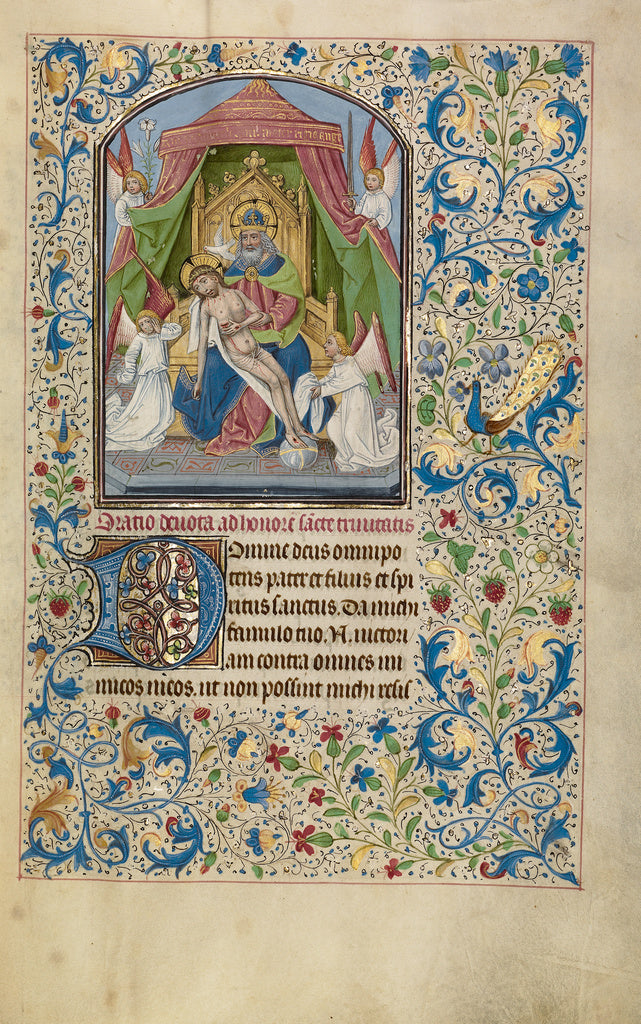 Oratio deuota ad honorē sācte trinitatis
Domine deus omnipo
tens pater et filius et spi
ritus sanctus. Da michi
famulo tuo .N. uictori/
am contra omnes ini
micos meos. ut non possint michi resis